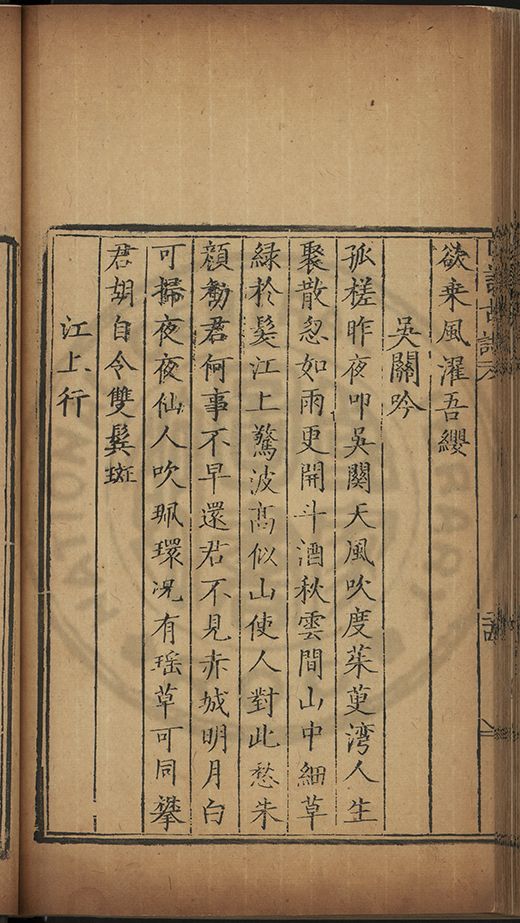 欲乗風濯吾纓
吳關吟
孤槎昨夜叩吳關天風吹度茱萸湾人生
聚散忽如雨更開斗酒秋雲間山中細草
緑於髪江上驚波髙似山使人對此愁朱
顔勸君何事不早還君不見赤城明月白
可掃夜夜仙人吹珮環况有瑶草可同攀
君胡自令雙鬂斑
江上行